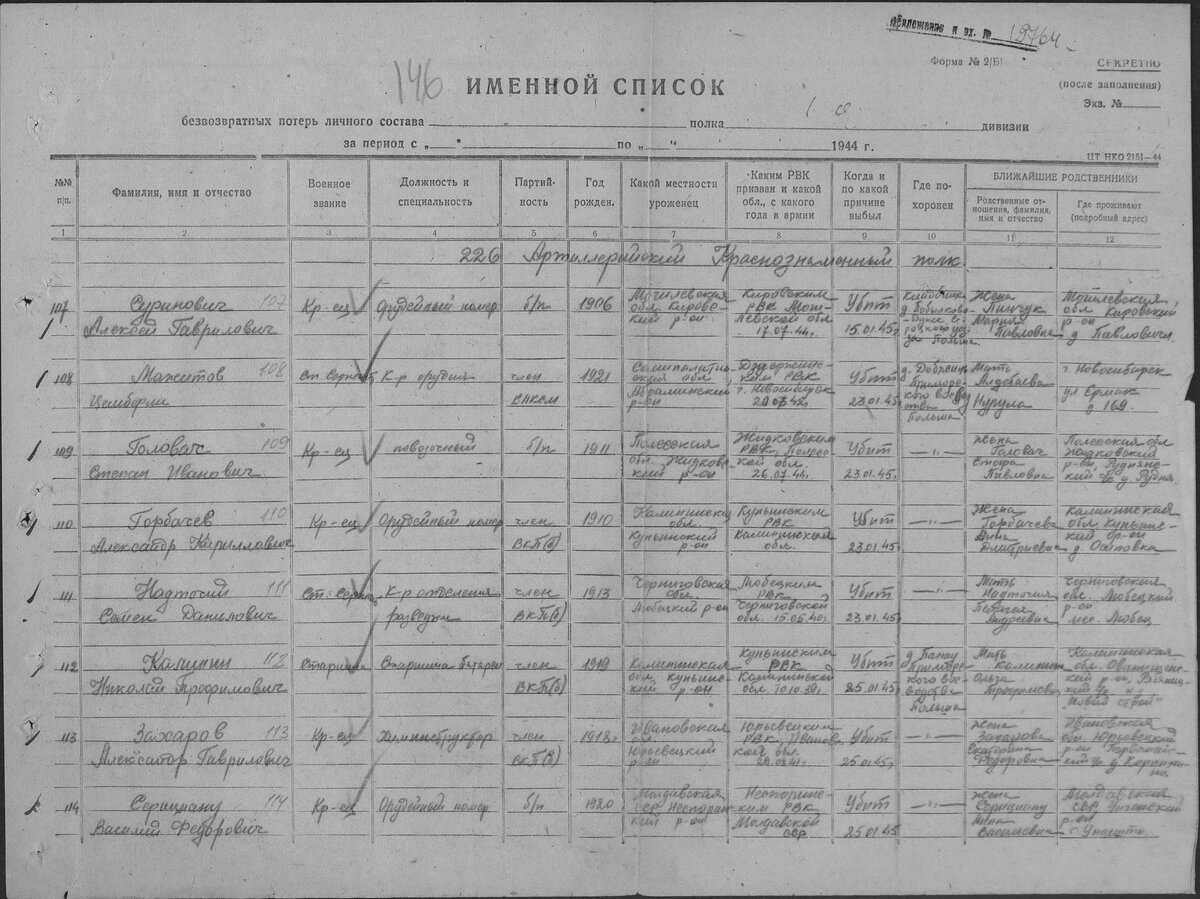 Приложение к вх. № 19764
Форма № 2(Б)
СЕКРЕТНО
(после заполнения)
Экз. №
146
ИМЕННОЙ СПИСОК
безвозвратных потерь личного состава полка 1-я дивизии
за период с „ “ по „ “ 1944 г.
ЦТ НКО 2161—44
№№ п/п.
Фамилия, имя и отчество
Военное звание
Должность и специальность
Партийность
Год рожден.
Какой местности уроженец
Каким РВК призван и какой обл., с какого года в армии
Когда и по какой причине выбыл
Где похоронен
БЛИЖАЙШИЕ РОДСТВЕННИКИ
Родственные отношения, фамилия, имя и отчество
Где проживают (подробный адрес)
1 2 3 4 5 6 7 8 9 10 11 12
226 Артиллерийский Краснознаменный полк
107 Суринович 107 Кр-ец Орудейный номер б/п 1906 Могилевская Кировским Убит Жена Могилевская
обл. Кировский р-он РВК Мог-левской обл Мария обл Кировский р-он
Алексей Гаврилович 17.07.44г. 15.01.45г Польша Павловна д Павловичи
108 Мажитов 108 Ст Сержант К-р орудия член 1921 Семипалатинская обл Дзержинском РВК Убит Мать г. Новосибирск
ВЛКСМ р-он г. Новосибирск 23.01.45г Польша Нурула ул Ермак д 169
109 Головач 109 Кр-ец повозочный б/п 1911 Полесская Житковским Убит —"— Жена Полесская обл
Степан Иванович обл. Житковский р-он РВК, Полесской обл. 26.07.44г. 23.01.45г Головач Павловна Житковский р-он, д. Рудня
110 Горбачев 110 Кр-ец Орудейный номер член 1910 Калининская обл. Куньинским РВК Убит —"— Жена Калининская
Александр Кириллович ВКП(б) Куньинский р-он Калининская обл. 23.01.45г Горбачева Анна Дмитриевна обл Куньинский р-он д Осиповка
111 Надточий 111 Ст. Сержант К-р отделения член 1913 Черниговская обл. Любецким РВК Убит —"— Мать Черниговская
Семен Данилович разведки ВКП(б) Любецкий р-он Черниговской обл. 15.05.40г 23.01.45г Надточия Пелагея Андреевна обл. Любецкий р-он мес. Любец
112 Калинин 112 Старшина Старшина батареи член 1919 Калининская Куньинским РВК Убит Мать Калининская
Николай Трофимович ВКП(б) обл, куньинский р-он Калининской обл 10.10.39г. 25.01.45г Польша Калинина Ольга обл
113 Захаров 113 Кр-ец Химинструктор член 1918г. Ивановская Юрьевецким Убит —"— Жена Ивановская
Александр Гаврилович ВКП(б) Юрьевецкий р-он РВК Иванов-ской обл. 25.01.45г Захарова Екатерина Федоровна обл. Юрьевецкий р-он
114 Серициану 114 Кр-ец Орудейный номер б/п 1920 Молдавская ССР РВК Убит —"— Жена Молдавская
Василий Федорович р-он Молдавской ССР 25.01.45 Серициану Васильевна ССР р-он